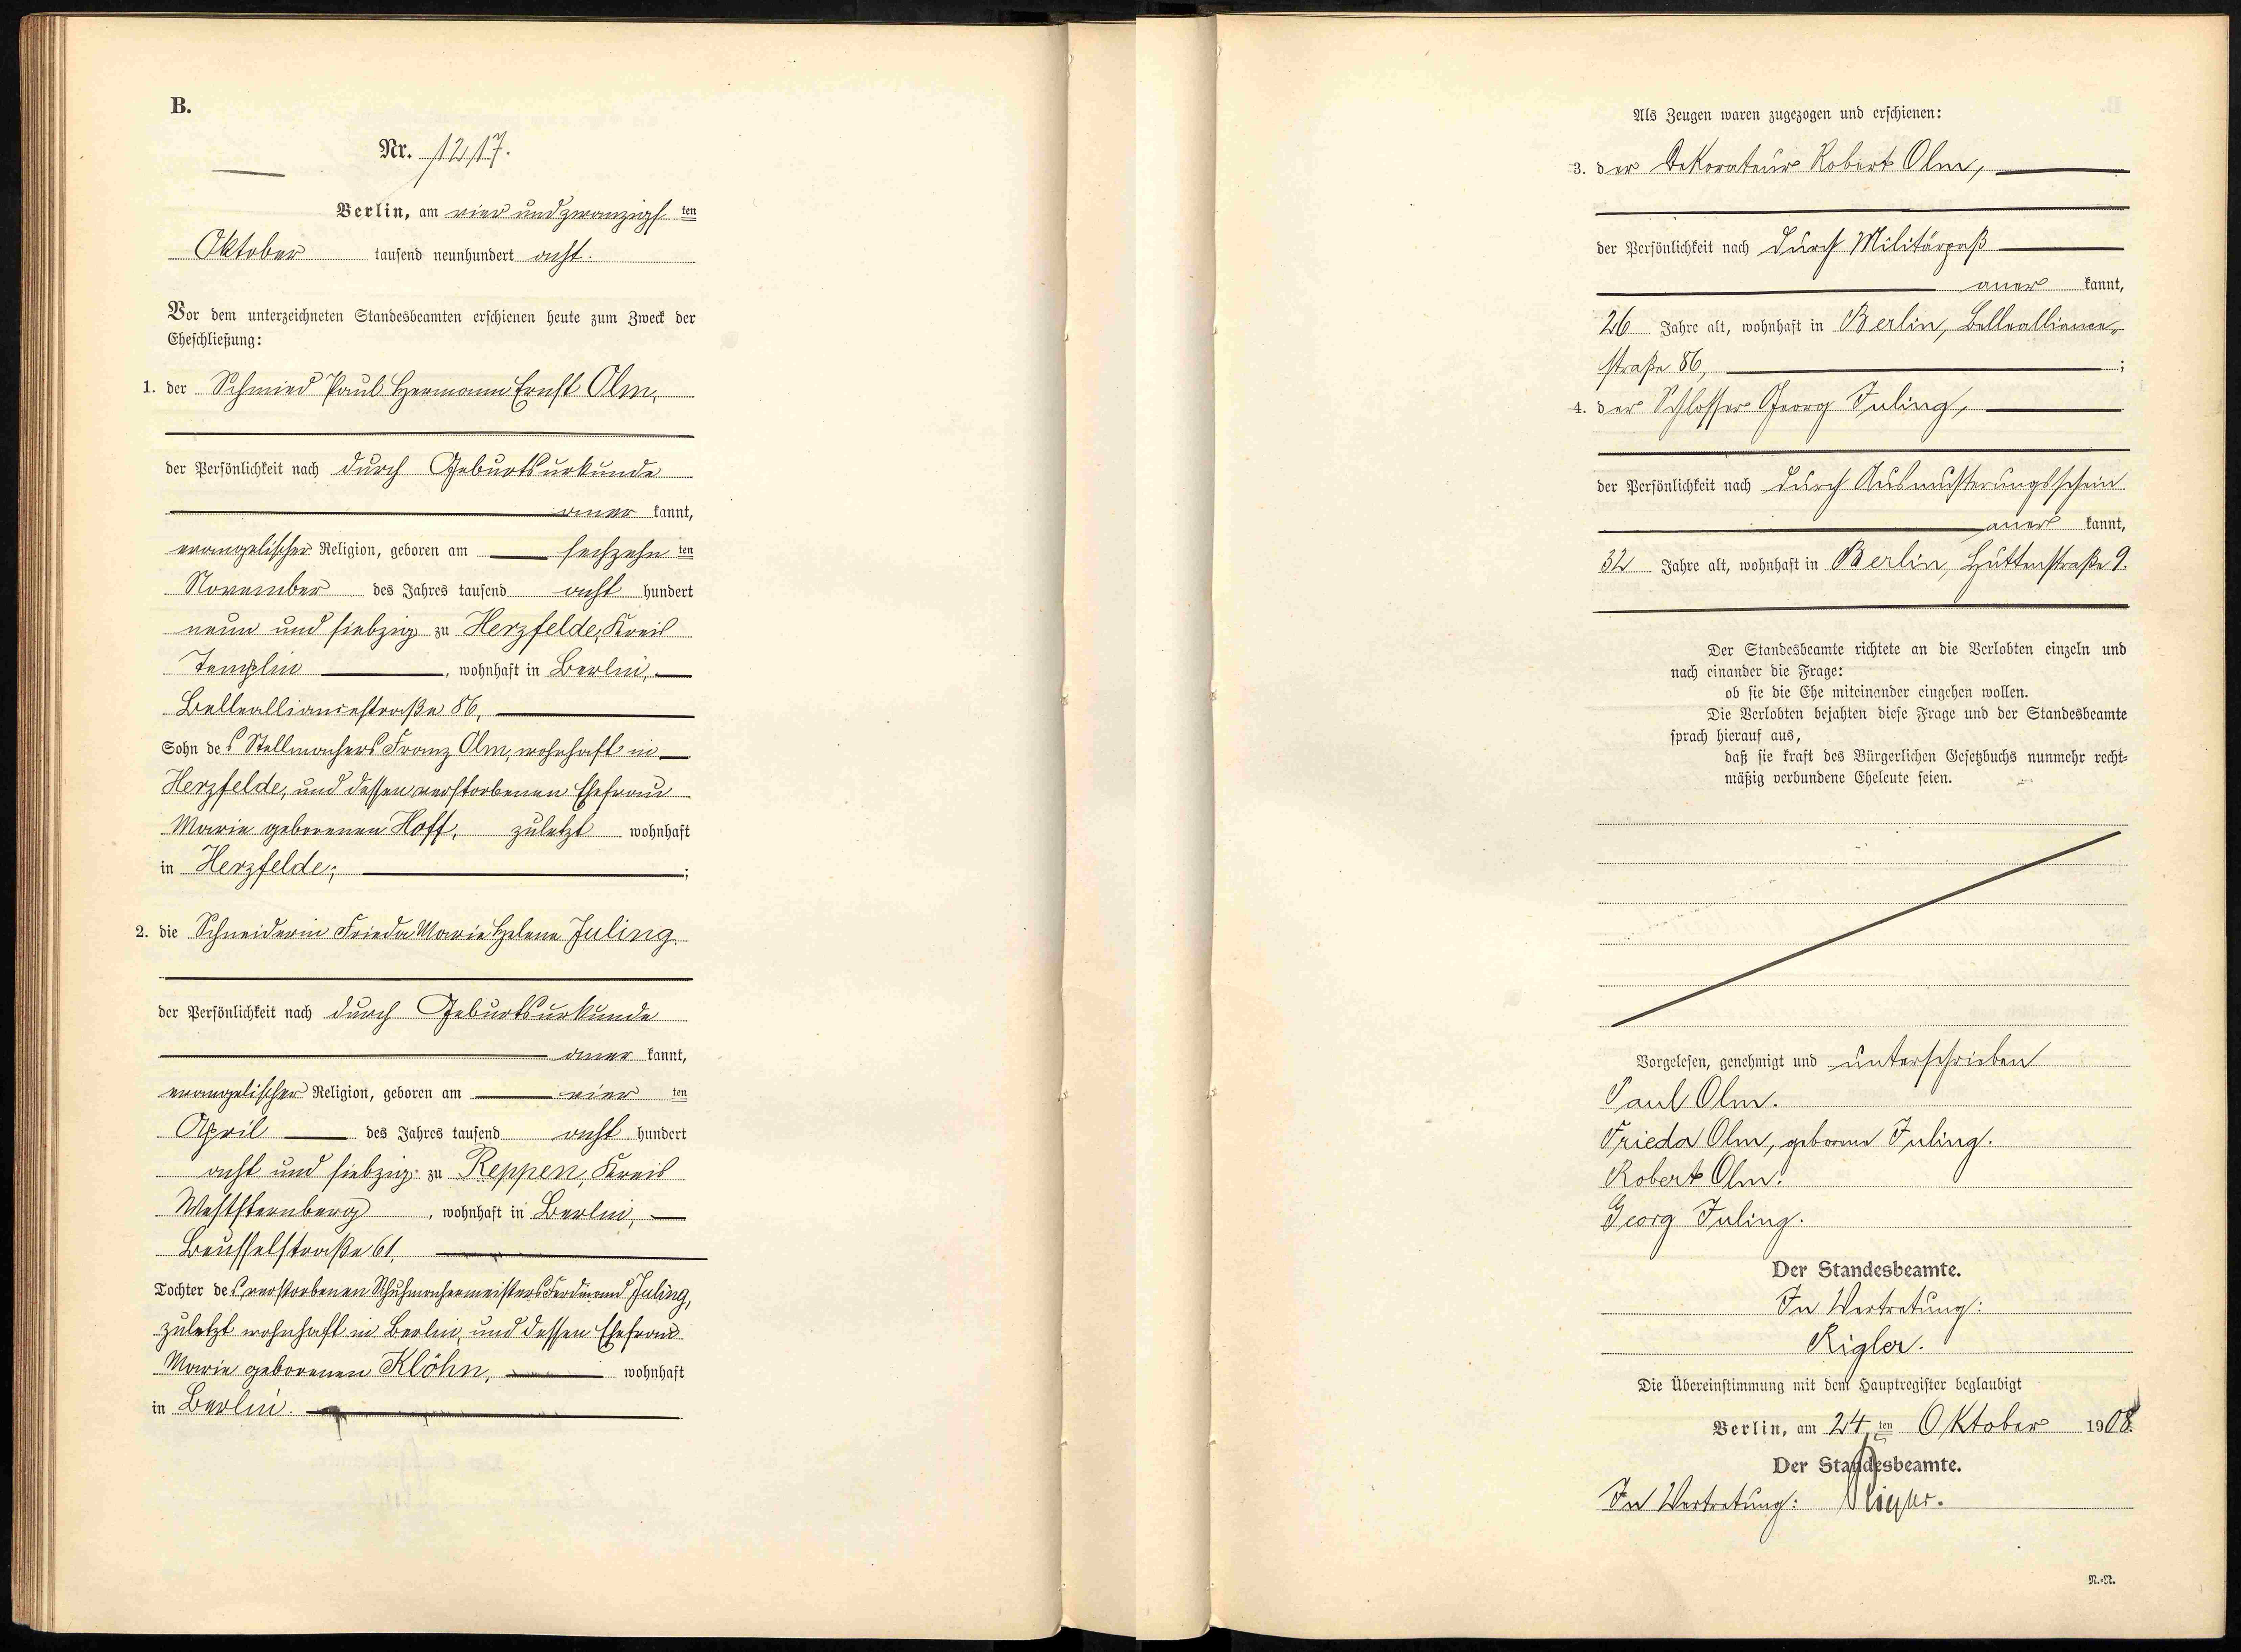 B.
Nr. 1217.
Berlin, am vier und zwanzigs ten
Oktober tausend neunhundert acht.
Vor dem unterzeichneten Standesbeamten erschienen heute zum Zweck der
Eheschließung:
1. der Schmied Paul Hermann Ernst Olm,
der Persönlichkeit nach durch Geburtsurkunde
aner kannt,
evangelischer Religion, geboren am sechzehn ten
November des Jahres tausend acht hundert
neun und siebzig zu Herzfelde, Kreis
Templin, wohnhaft in Berlin,
Bellealliancestraße 86,
Sohn des Stellmachers Franz Olm, wohnhaft in
Herzfelde, und dessen verstorbenen Ehefrau
Marie geborenen Hoff, zuletzt wohnhaft
in Herzfelde;
2. die Schneiderin Frieda Marie Helene Juling
der Persönlichkeit nach durch Geburtsurkunde
aner kannt,
evangelischer Religion, geboren am vier ten
April des Jahres tausend acht hundert
acht und siebzig zu Reppen, Kreis
Weststernberg, wohnhaft in Berlin,
Beusselstraße 61,
Tochter des verstorbenen Schuhmachermeisters Ferdinand Juling,
zuletzt wohnhaft in Berlin, und dessen Ehefrau
Marie geborenen Klöhn, wohnhaft
in Berlin.
Als Zeugen waren zugezogen und erschienen:
3. der Dekorateur Robert Olm,
der Persönlichkeit nach durch Militärpaß
aner kannt,
26 Jahre alt, wohnhaft in Berlin, Bellealliance-
straße 86, ;
4. der Schlosser Georg Juling,
der Persönlichkeit nach durch Ausmusterungsschein
aner kannt,
32 Jahre alt, wohnhaft in Berlin, Huttenstraße 9.
Der Standesbeamte richtete an die Verlobten einzeln und
nach einander die Frage:
ob sie die Ehe miteinander eingehen wollen.
Die Verlobten bejahten diese Frage und der Standesbeamte
sprach hierauf aus,
daß sie kraft des Bürgerlichen Gesetzbuchs nunmehr recht-
mäßig verbundene Eheleute seien.
Vorgelesen, genehmigt und unterschrieben
Paul Olm.
Frieda Olm, geborene Juling.
Robert Olm.
Georg Juling.
Der Standesbeamte.
In Vertretung:
Rigler.
Die Übereinstimmung mit dem Hauptregister beglaubigt
Berlin, am 24 ten Oktober 1908.
Der Standesbeamte.
In Vertretung: Rigler.
N.-N.